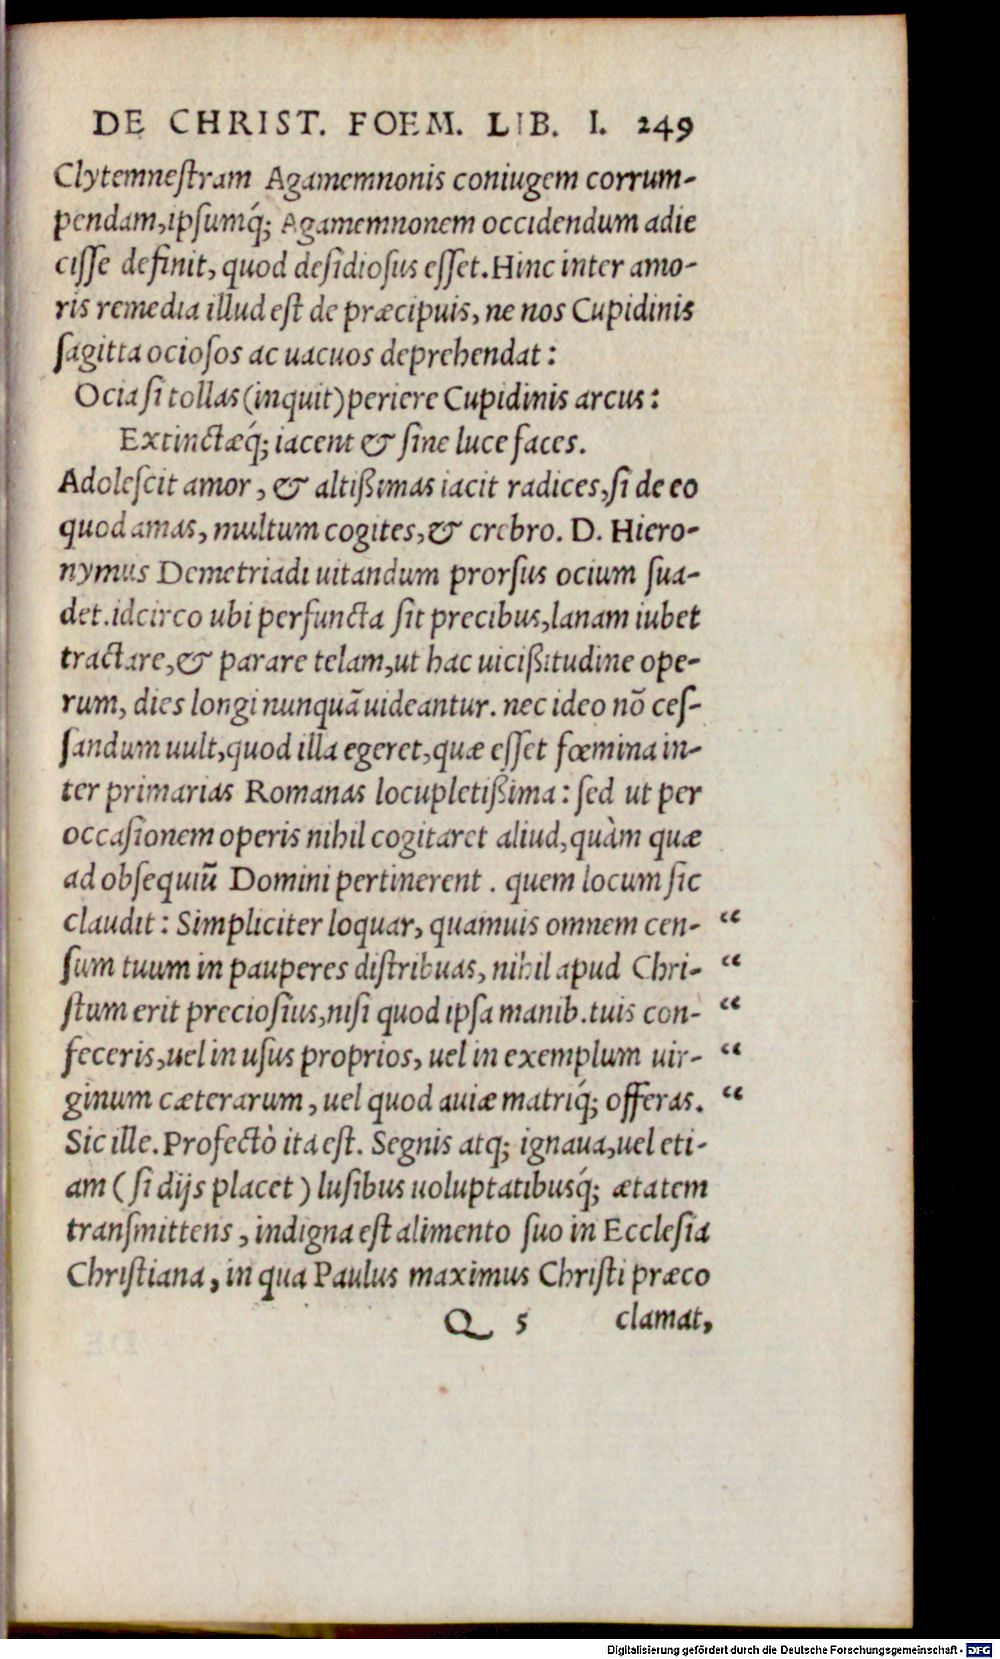 DE CHRIST. FOEM. LIB. I. 249
Clytemneſtram Agamemnonis coniugem corrum-
pendam, ipſumq́; Agamemnonem occidendum adie
ciſſe definit, quod deſidioſus eſſet. Hinc inter amo-
ris remedia illud eſt de præcipuis, ne nos Cupidinis
ſagitta ocioſos ac uacuos deprehendat:
Ocia ſi tollas (inquit) periere Cupidinis arcus:
Extinctæq́; iacent & ſine luce faces.
Adoleſcit amor, & altißimas iacit radices, ſi de eo
quod amas, multum cogites, & crebro. D. Hiero-
nymus Demetriadi uitandum prorſus ocium ſua-
det. idcirco ubi perfuncta ſit precibus, lanam iubet
tractare, & parare telam, ut hac uicißitudine ope-
rum, dies longi nunquā uideantur. nec ideo nō ceſ-
ſandum uult, quod illa egeret, quæ eſſet fœmina in-
ter primarias Romanas locupletißima: ſed ut per
occaſionem operis nihil cogitaret aliud, quàm quæ
ad obſequiū Domini pertinerent. quem locum ſic
claudit: Simpliciter loquar, quamuis omnem cen- “
ſum tuum in pauperes diſtribuas, nihil apud Chri- “
ſtum erit precioſius, niſi quod ipſa manib. tuis con- “
feceris, uel in uſus proprios, uel in exemplum uir- “
ginum cæterarum, uel quod auiæ matriq́; offeras. “
Sic ille. Profectò ita eſt. Segnis atq; ignaua, uel eti-
am (ſi dijs placet) luſibus uoluptatibusq́; ætatem
tranſmittens, indigna eſt alimento ſuo in Eccleſia
Chriſtiana, in qua Paulus maximus Chriſti præco
Q 5 clamat,
Digitalisierung gefördert durch die Deutsche Forschungsgemeinschaft - DFG